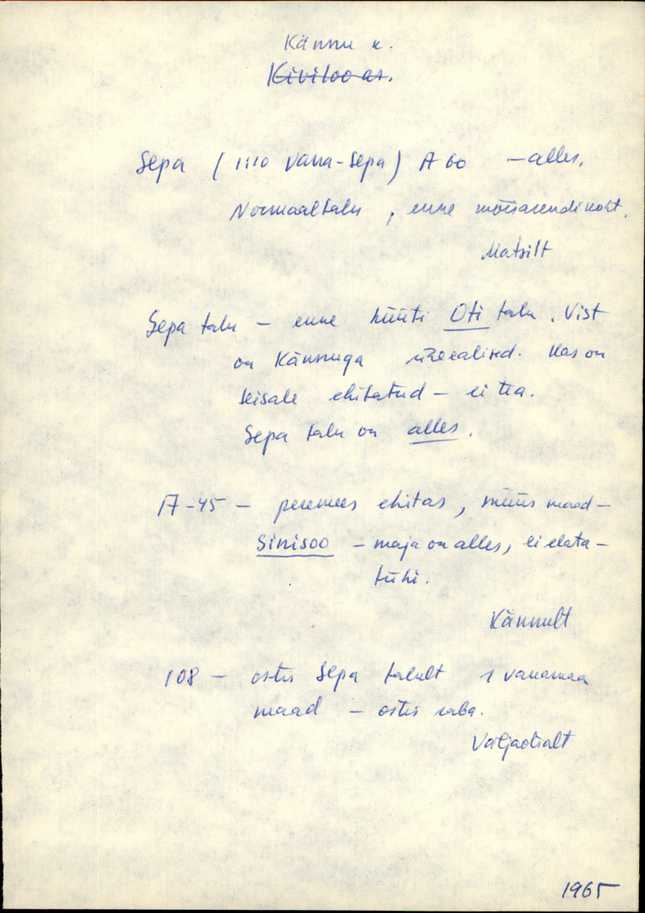 Kännu k.
Kiviloo as.
Sepa ( Vana-Sepa) A 60 — alles.
Normaaltalu, enne mõisasendi koht.
Matsilt
Sepa talu — enne hüüti Oti talu. Vist
on Kännuga üheealised. Kas on
teisale ehitatud — ei tea.
Sepa talu on alles.
A-45 — peremees ehitas, müüs maad —
Sinisoo — maja on alles, ei elata —
tühi.
Kännult
108 — ostis Sepa talult 1 vanamaa
maad — ostis raba.
Väljaotsalt
1965